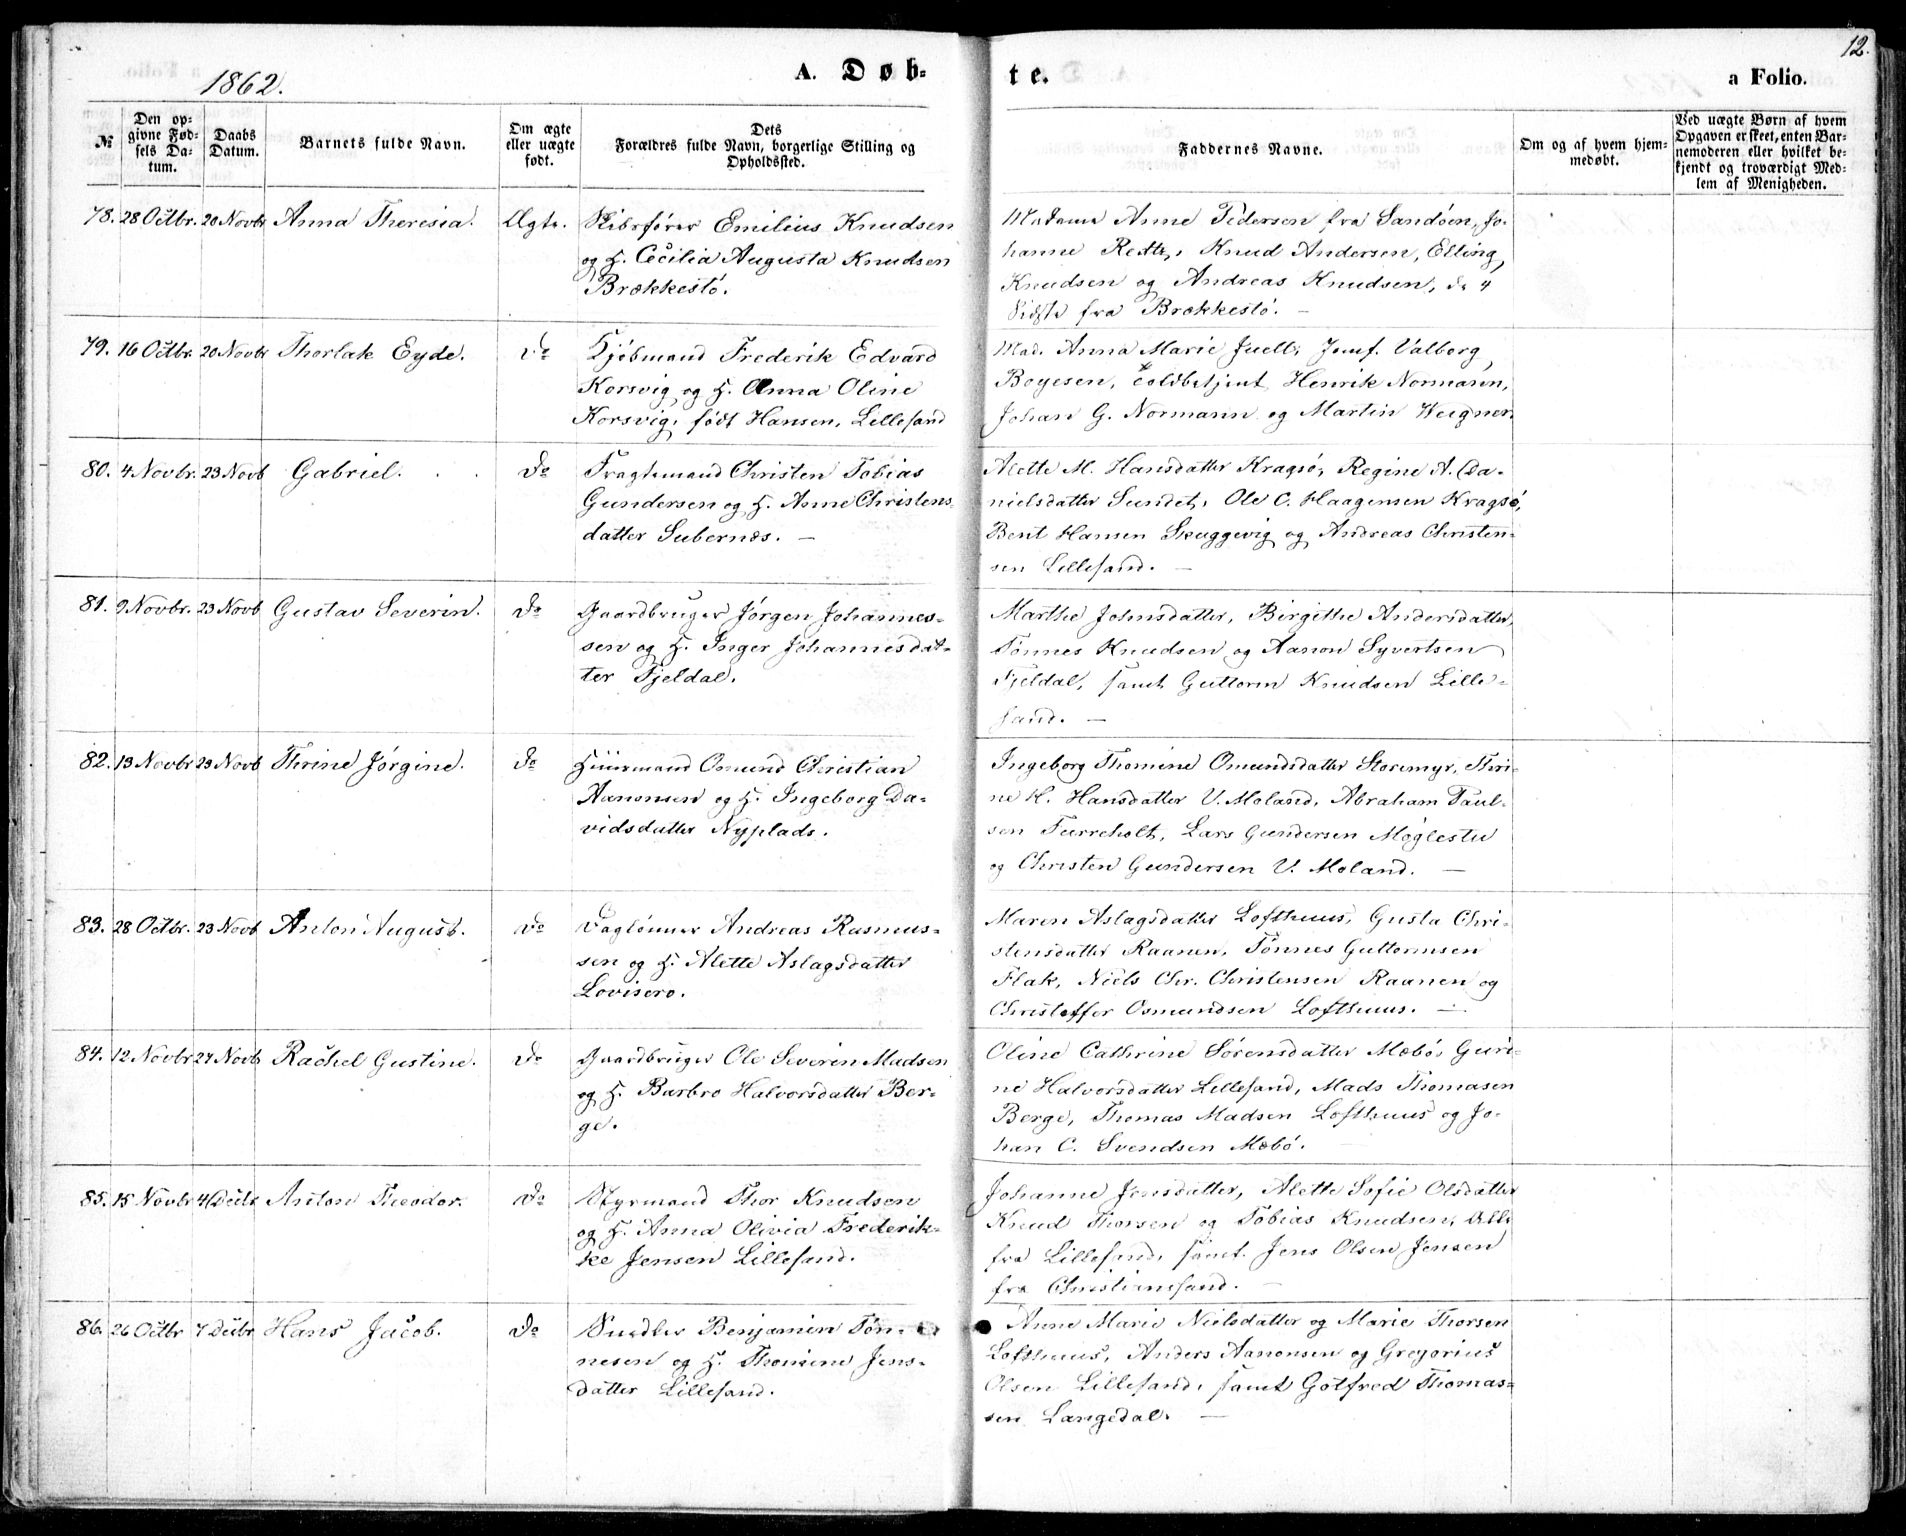 12.
1862.
A. Døb-
te.
a Folio.
№
Den op-
givne Fød-
sels Da-
tum.
Daabs
Datum.
Barnets fulde Navn.
Om ægte
eller uægte
født.
Dets
Forældres fulde Navn, borgerlige Stilling og
Opholdssted.
Faddernes Navne.
Om og af hvem hjem-
medøbt.
Ved uægte Børn af hvem
Opgaven er skeet, enten Bar-
nemoderen eller hvilket be-
kjendt og troværdigt Med-
lem af Menigheden.
78. 28 Octbr. 20 Novbr Anna Theresia. Ægte. Skibsfører Emilius Knudsen
og H. Cecilia Augusta Knudsen
Brækkestö.
Madame Anne Pedersen fra Sandöen, Jo-
hanne Knud Andersen, Elling
Knudsen og Andreas Knudsen, de 4
Sidste fra Brækkestö. —
79. 16 Octbr. 20 Novbr Thorlak Eyde. do Kjöbmand Frederik Edvard
Korsvig og H. Anna Oline
Korsvig, født Hansen, Lillesand
Mad. Anna Marie Juell, Jomf. Valborg
Boyesen, Toldbetjent Henrik Normann,
Johan G. Normann og Martin Weigner
80. 4 Novbr. 23 Novb Gabriel. do Fragtemand Christen Tobias
Gundersen og H. Anne Christens-
datter Subernæs. —
Alette M. Hansdatter Kragsö, Regine A. Da-
nielsdatter Sundet, Ole C. Haagensen Kragsö,
Bent Hansen Skaggevig og Andreas Christen-
sen Lillesand. —
81. 9 Novbr. 23 Novb Gustav Severin. do Gaardbruger Jørgen Johannes-
sen og H. Inger Johannesdat-
ter Fjeldal.
Marthe Johnsdatter, Birgithe Andersdatter,
Tønnes Knudsen og Aanon Syvertsen
Fjeldal, samt Guttorm Knudsen Lille-
sand. —
82. 13 Novbr 23 Novb Thrine Jørgine. do Huusmand Osmund Christian
Aanonsen og H. Ingeborg Da-
vidsdatter Nyplads.
Ingeborg Thomine Omundsdatter Storemyr, Thri-
ne K. Hansdatter V. Moland, Abraham Paul-
sen Turreholt, Lars Gundersen Møglestu
og Christen Gundersen V. Moland. —
83. 28 Octbr. 23 Novb Anton August. do Daglønner Andreas Rasmus-
sen og H. Alette Aslagsdatter
Lovisero.
Maren Aslagsdatter Lofthuus, Gusta Chri-
stensdatter Raanen, Tønnes Guttormsen
Flak, Niels Chr. Christensen Raanen og
Christoffer Osmundsen Lofthuus. —
84. 12 Novbr 27 Novb Rachel Gustine. do Gaardbruger Ole Severin Madsen
og H. Barbro Halvorsdatter Ber-
ge.
Oline Cathrine Sörensdatter Mæbö, Guri-
ne Halvorsdatter Lillesand, Mads Thomasen
Berge, Thomas Madsen Lofthuus og Jo-
han C. Svendsen Mæbö.
85. 15 Novbr 4/Decbr Anton Theodor. do Styrmand Thor Knudsen
og H. Anna Olivia Frederik-
ke Jensen Lillesand.
Johanne Jensdatter, Alette Sofie Olsdatter
Knud Thorsen og Tobias Knudsen, Alle
fra Lillesand, samt Jens Olsen Jensen
fra Christiansand. —
86. 26 Octbr 7 Decbr Hans Jacob. do Snedker Benjamin Tøn-
nesen og H. Thomine Jens-
datter Lillesand.
Anne Marie Nielsdatter og Marie Thorsen
Lofthuus, Anders Aanonsen og Gregorius
Olsen Lillesand, samt Gotfred Thomas-
sen Langedal. —